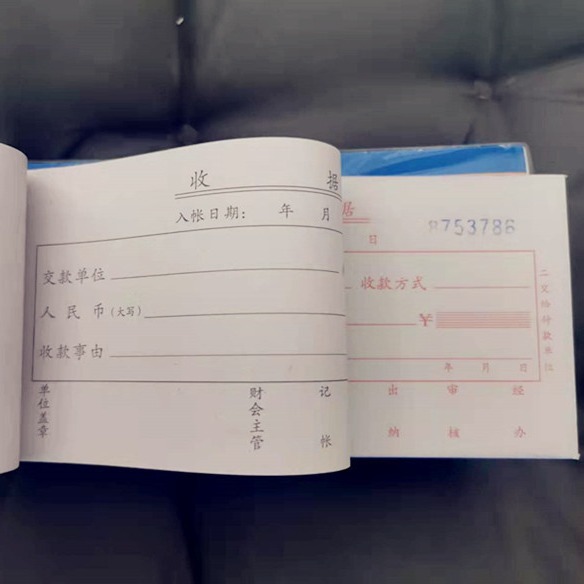 收 据
入帐日期： 年 月
交款单位
人民币(大写)
收款事由
单位盖章
财会主管
记帐
据
日 8753786
收款方式
¥
年 月 日
出纳
审核
经办
二交给付款单位